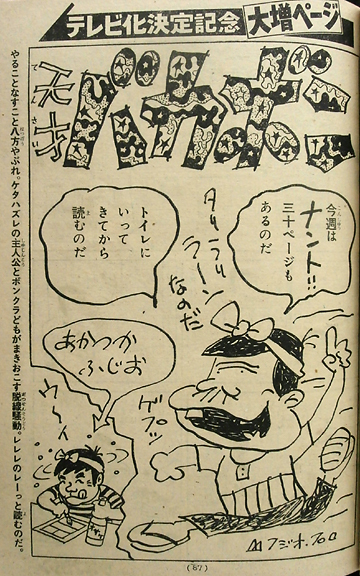 テレビ化決定記念 大増ページ
天才バカボン
てんさい
今週は
ナント!!
三十ページも
あるのだ
タリラリ
ラーン
なのだ
トイレに
いって
きてから
読むのだ
あかつか
ふじお
ゲプッ
ウ〜イ
フジオ・プロ
やることなすこと八方やぶれ。ケタハズレの主人公とボンクラどもがまきおこす脱線騒動。レレレのレーっと読むのだ。
(67)